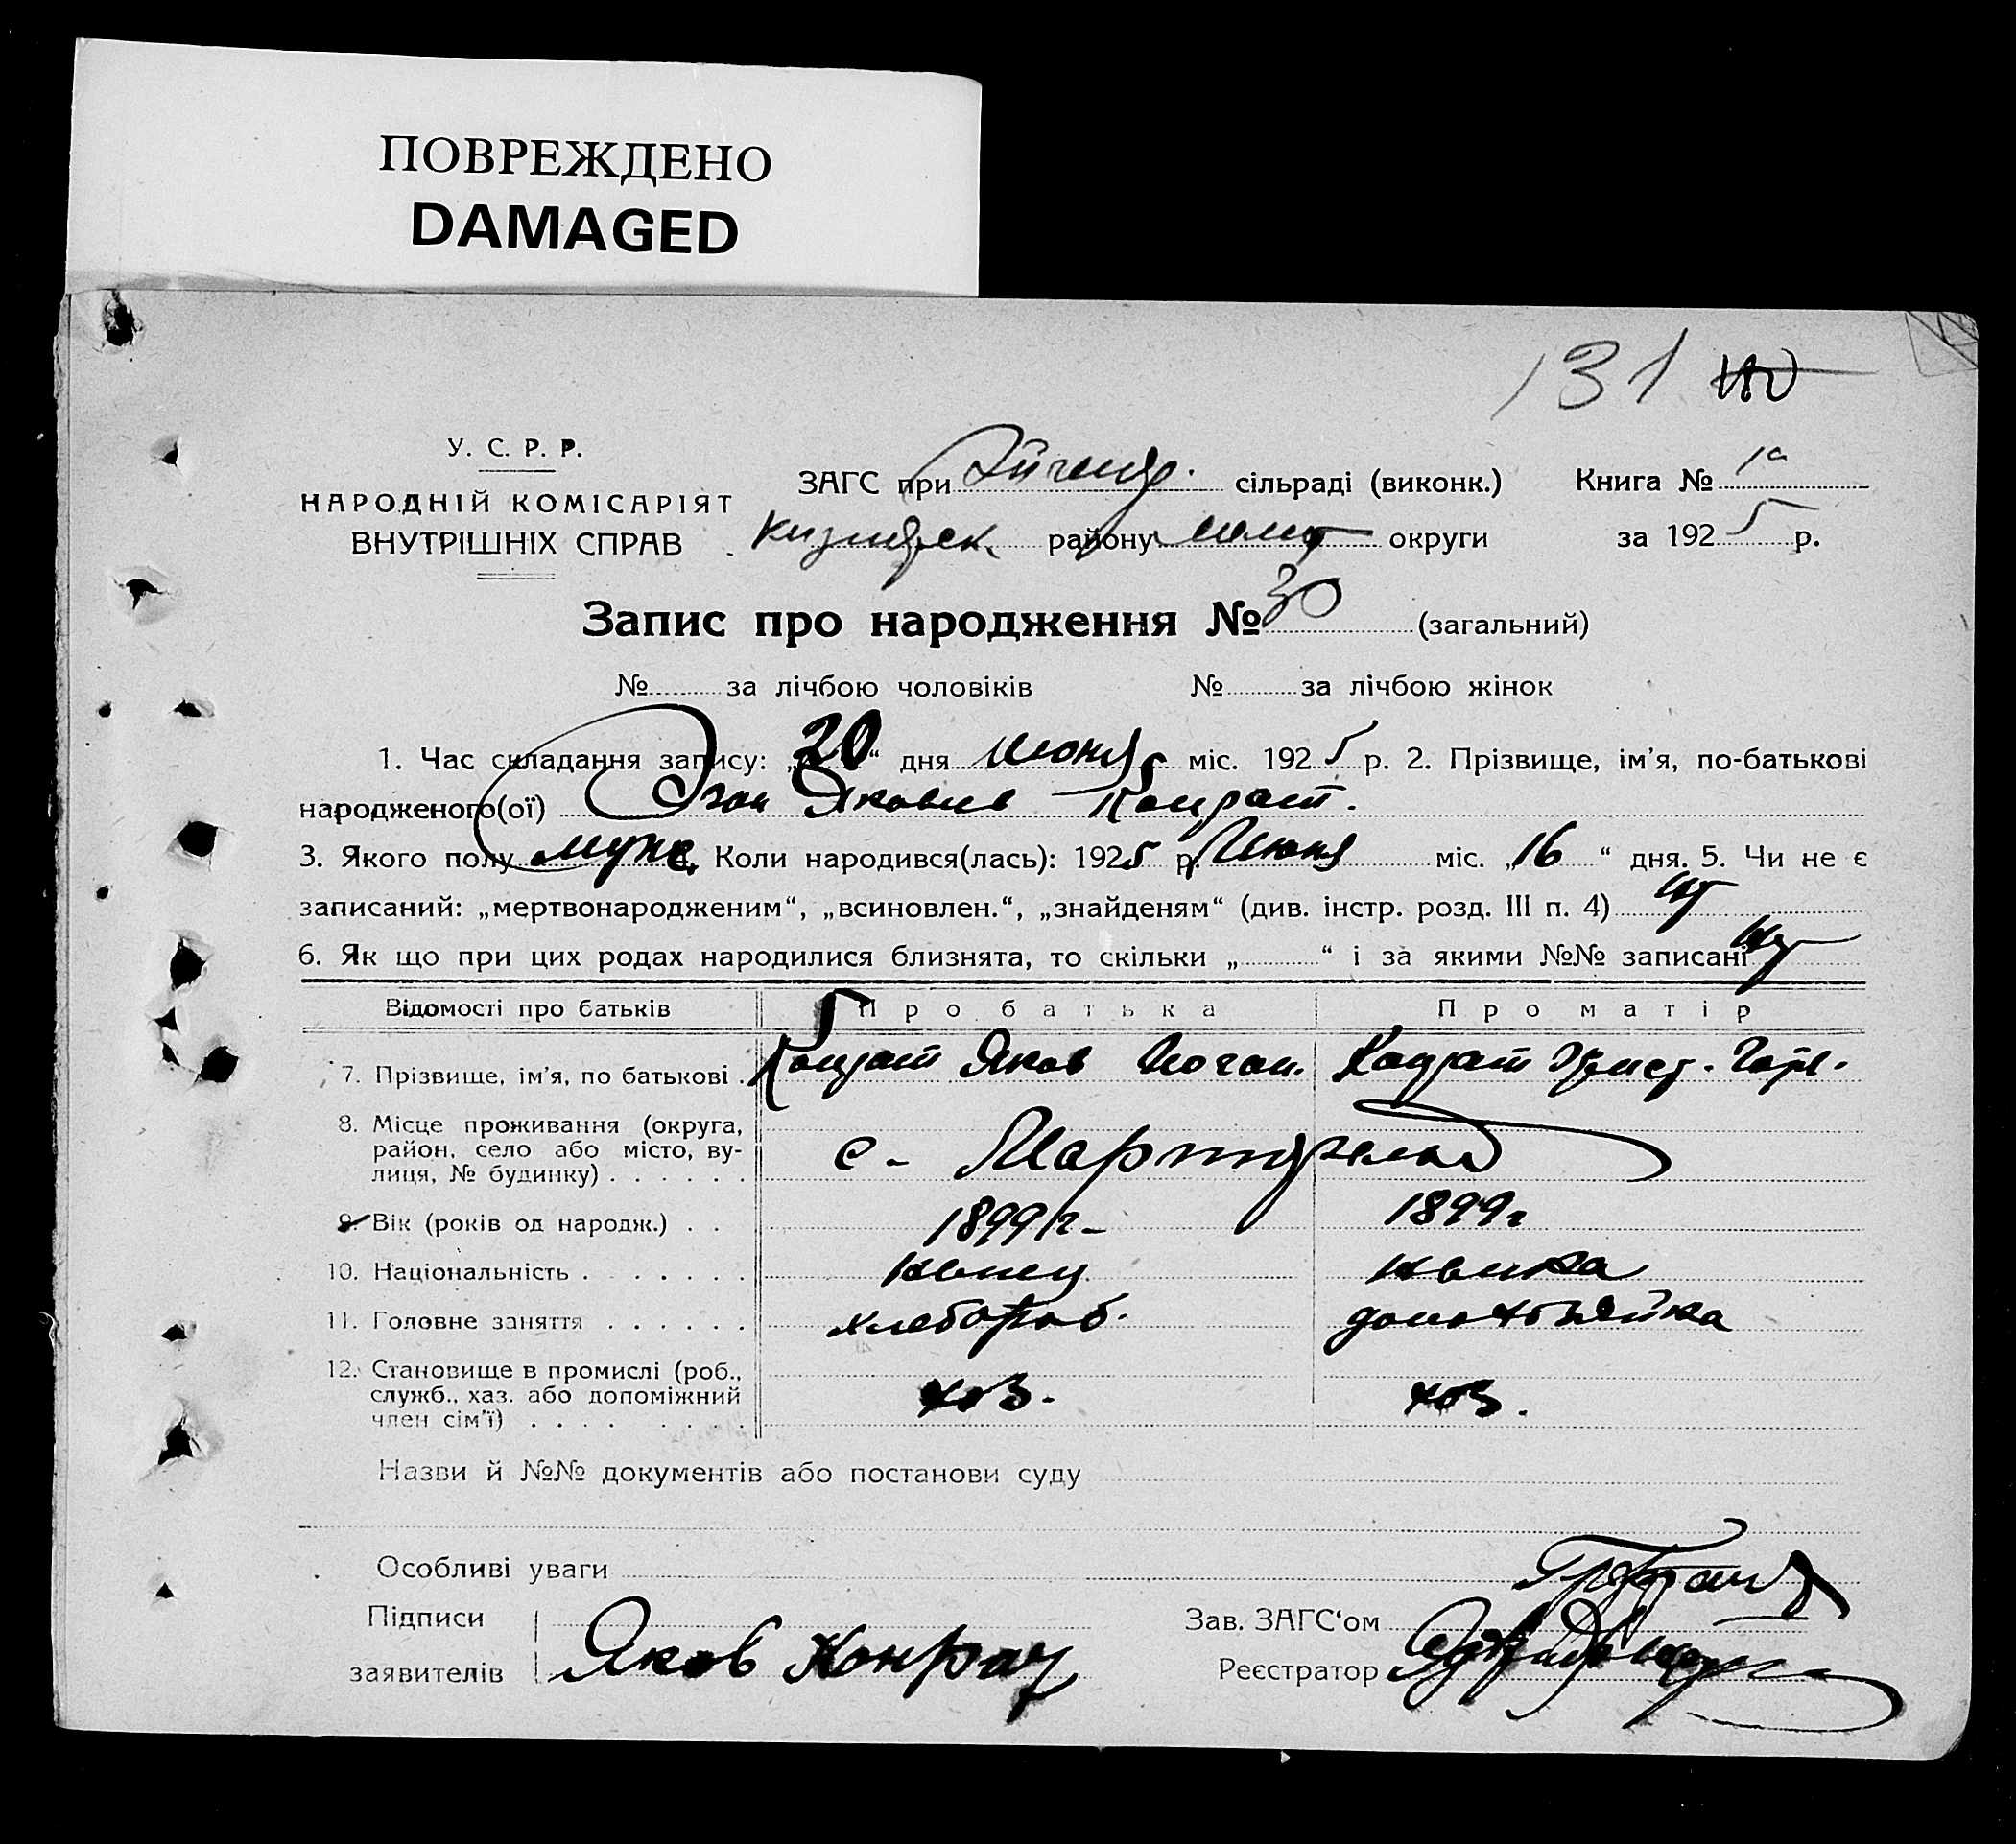 ПОВРЕЖДЕНО
DAMAGED
131
У. С. Р. Р.
НАРОДНІЙ КОМІСАРІЯТ
ВНУТРІШНІХ СПРАВ
ЗАГС при сільраді (виконк.) Книга № 1а
району округи за 1925 р.
Запис про народження № 30 (загальний)
№ за лічбою чоловіків № за лічбою жінок
1. Час складання запису: „20“ дня Июня міс. 1925 р. 2. Прізвище, ім'я, по-батькові
народженого(ої) Яковлев Конрат.
3. Якого полу муж. Коли народився(лась): 1925 р. Июня міс. „16“ дня. 5. Чи не є
записаний: „мертвонародженим“, „всиновлен.“, „знайденям“ (див. інстр. розд. III п. 4) нет
6. Як що при цих родах народилися близнята, то скільки „ “ і за якими №№ записані нет
Відомості про батьків Про батька Про матір
7. Прізвище, ім'я, по батькові . Конрат Яков Иоган. Конрат
8. Місце проживання (округа,
район, село або місто, ву-
лиця, № будинку) . . . . . . с-
9. Вік (років од народж.) . . 1899 г- 1899 г
10. Національність . . . . . . . немец немка
11. Головне заняття . . . . . . хлебороб. домохозяйка
12. Становище в промислі (роб.,
служб., хаз. або допоміжний
член сім'ї) . . . . . . . . хоз. хоз.
Назви й №№ документів або постанови суду
Особливі уваги
Підписи Зав. ЗАГС‘ом
заявителів Яков Конрад Реєстратор